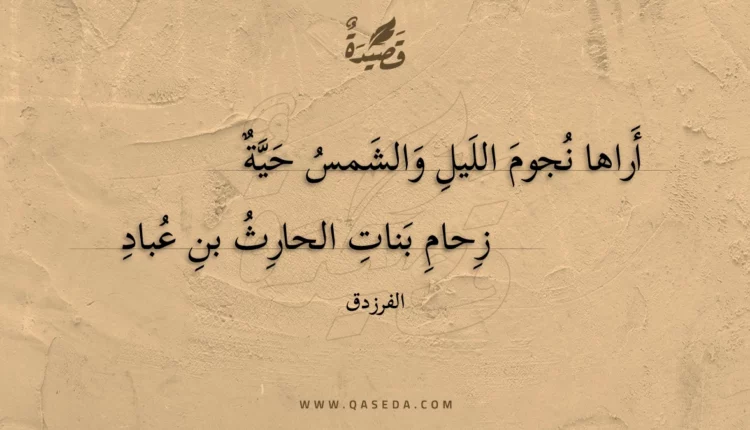 قَصِيدَةٌ
أَراها نُجومَ اللَيلِ وَالشَمسُ حَيَّةٌ
زِحامِ بَناتِ الحارِثُ بنِ عُبادِ
الفرزدق
WWW.QASEDA.COM